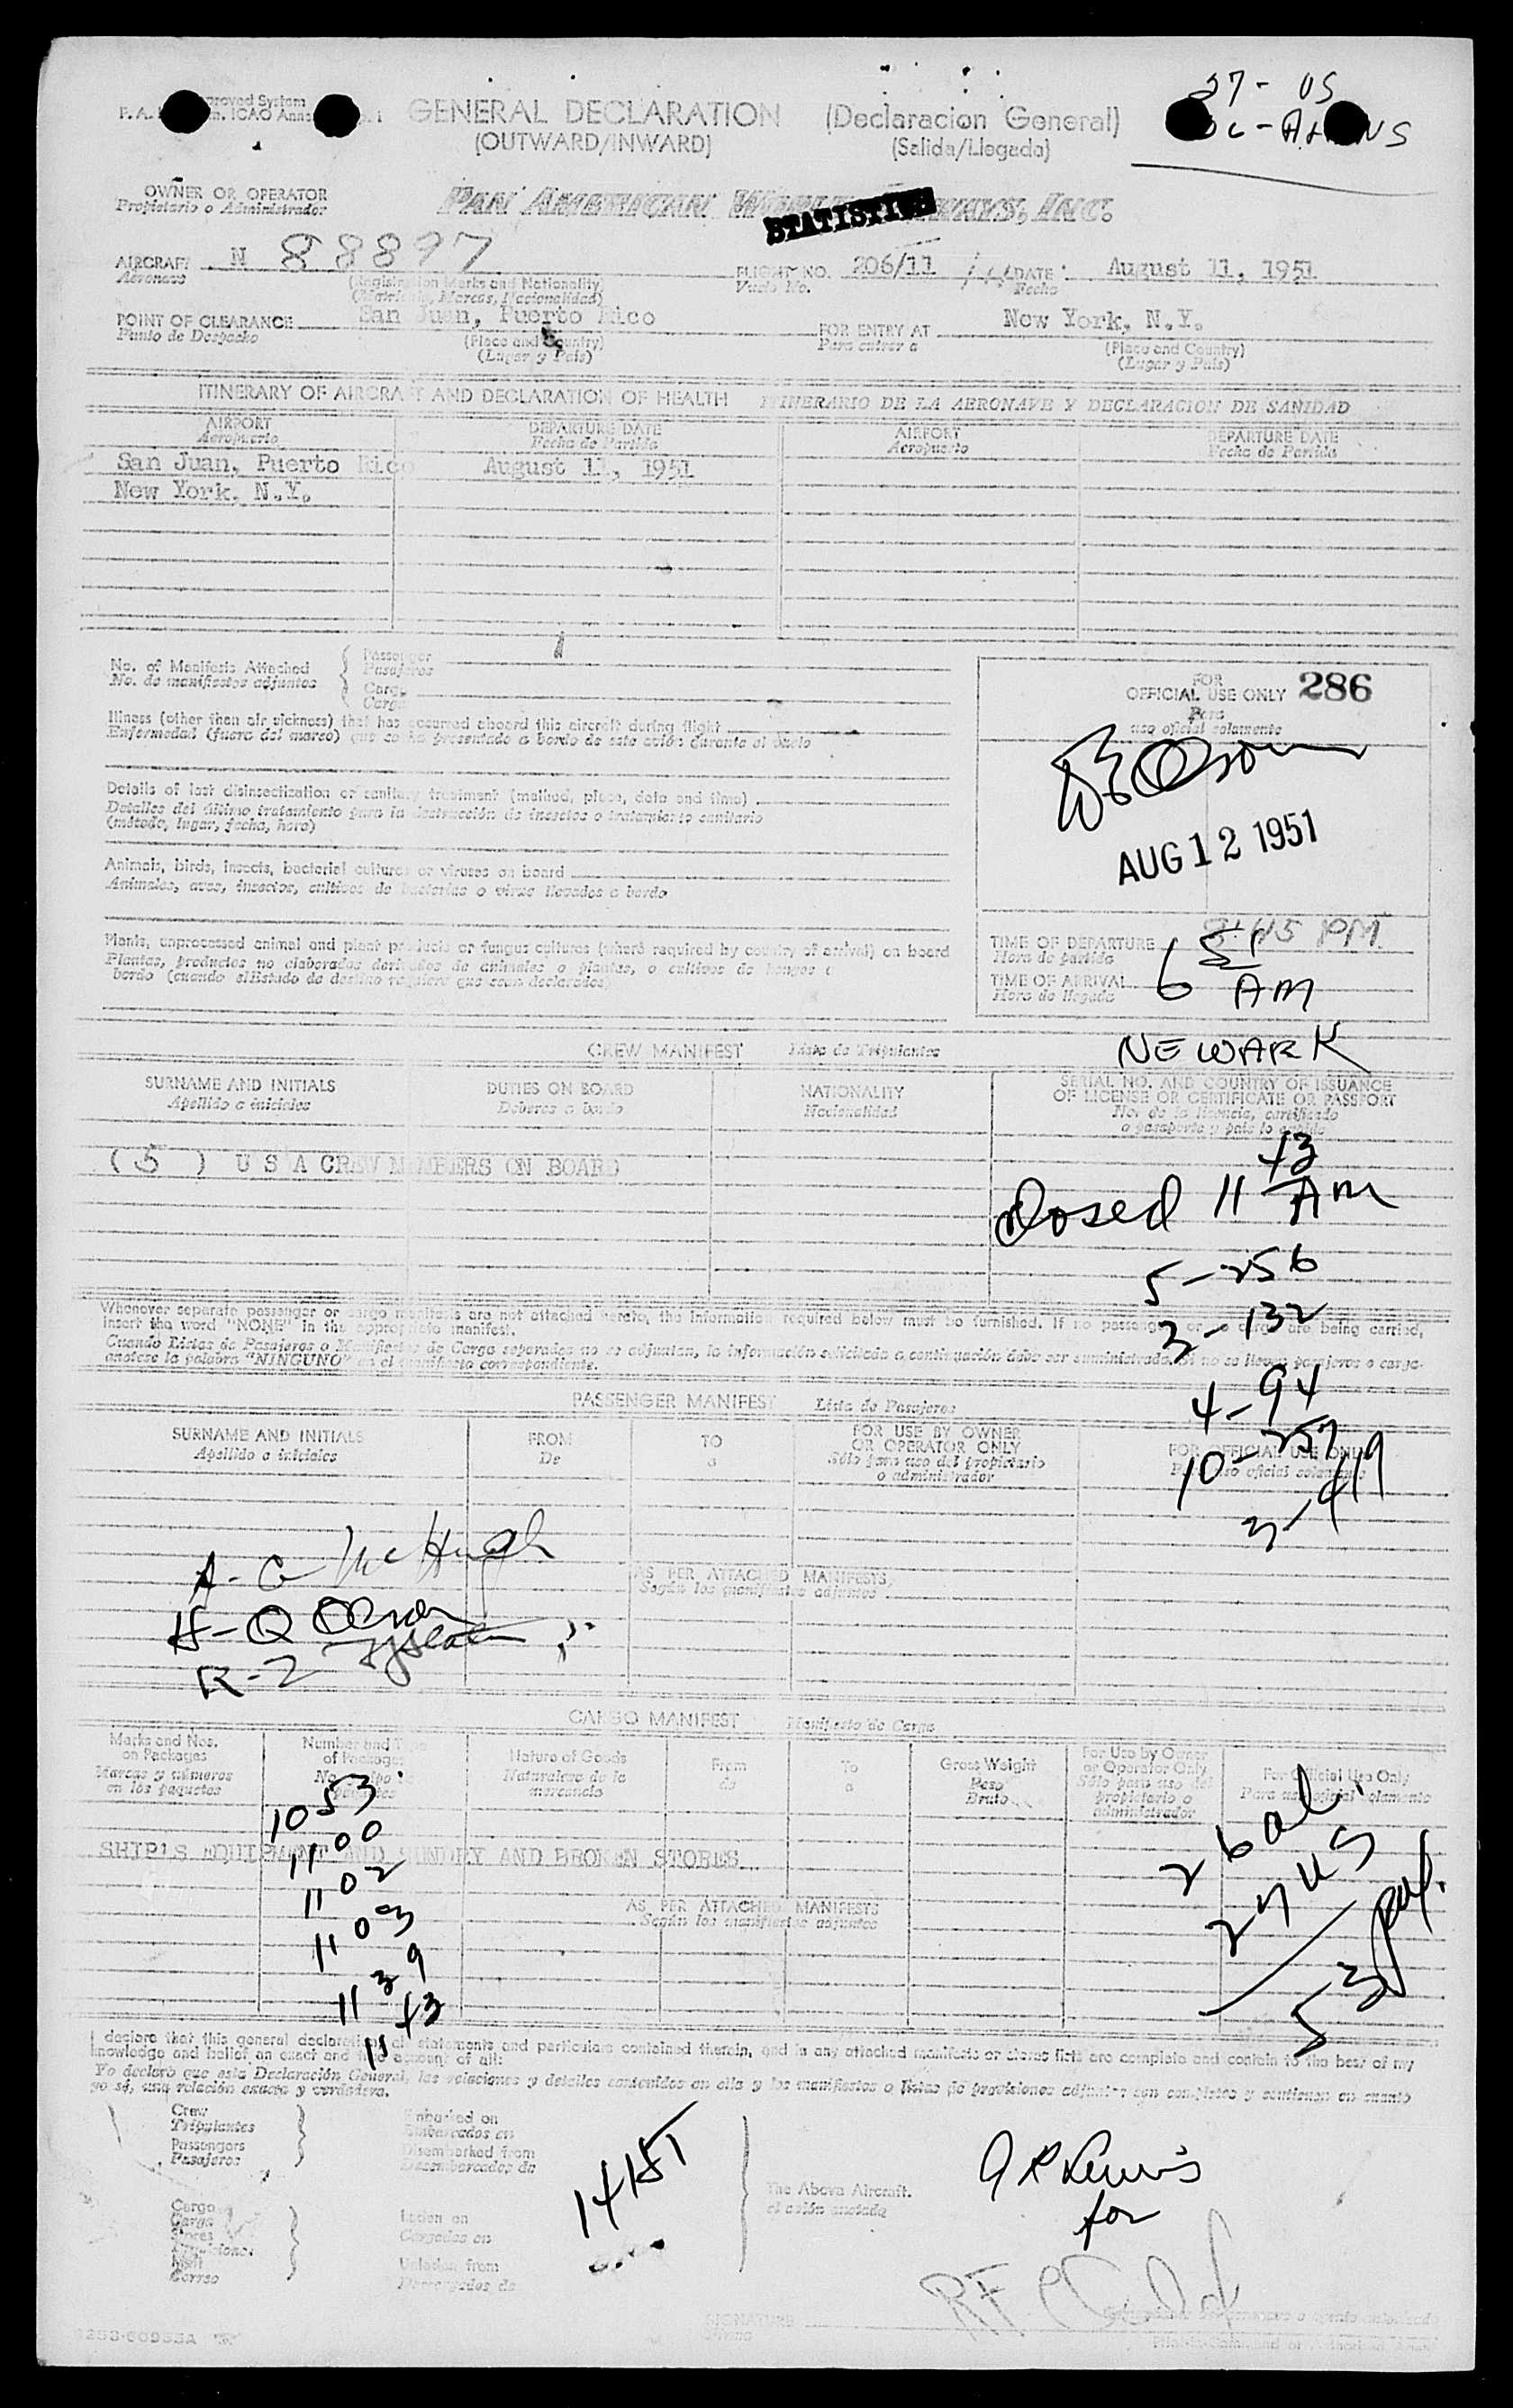 27 - US
GENERAL DECLARATION (Declaracion General)
(OUTWARD/INWARD) (Salida/Llegada)
OWNER OR OPERATOR
Propietario o Administrador
PAN AMERICAN WORLD AIRWAYS, INC.
STATISTICS
AIRCRAFT N 88897 FLIGHT NO. 206/11 DATE August 11, 1951
Aeronave (Registration Marks and Nationality) Vuelo No. Fecha
(Matricula, Marcas, Nacionalidad)
POINT OF CLEARANCE San Juan, Puerto Rico FOR ENTRY AT New York, N.Y.
Punto de Despacho (Place and Country) Para entrar a (Place and Country)
(Lugar y País) (Lugar y País)
ITINERARY OF AIRCRAFT AND DECLARATION OF HEALTH ITINERARIO DE LA AERONAVE Y DECLARACION DE SANIDAD
AIRPORT DEPARTURE DATE AIRPORT DEPARTURE DATE
Aeropuerto Fecha de Partida Aeropuerto Fecha de Partida
San Juan, Puerto Rico August 11, 1951
New York, N.Y.
No. of Manifests Attached Passenger
No. de manifiestos adjuntos Pasajeros
Cargo
Carga
FOR
OFFICIAL USE ONLY 286
Para
uso oficial solamente
Illness (other than air sickness) that has occurred aboard this aircraft during flight
Enfermedad (fuera del mareo) que se ha presentado a bordo de este avión durante el vuelo
Details of last disinsectization or sanitary treatment (method, place, date and time)
Detalles del último tratamiento para la destrucción de insectos o tratamiento sanitario
(método, lugar, fecha, hora)
AUG 12 1951
Animals, birds, insects, bacterial cultures or viruses on board
Animales, aves, insectos, cultivos de bacterias o virus llevados a bordo
Plants, unprocessed animal and plant products or fungus cultures (where required by country of arrival) on board
Plantas, productos no elaborados derivados de animales o plantas, o cultivos de hongos a
bordo (cuando el Estado de destino requiera que sean declarados)
TIME OF DEPARTURE 8:45 PM
Hora de partida
TIME OF ARRIVAL 6 51 AM
Hora de llegada
NEWARK
CREW MANIFEST Lista de Tripulantes
SURNAME AND INITIALS DUTIES ON BOARD NATIONALITY SERIAL NO. AND COUNTRY OF ISSUANCE
OF LICENSE OR CERTIFICATE OR PASSPORT
Apellido e iniciales Deberes a bordo Nacionalidad No. de la licencia, certificado
o pasaporte y país lo expide
( 5 ) U S A CREW MEMBERS ON BOARD
Closed 11 43 AM
5 - 256
3 - 132
4 - 94
10 - 257
3 - 419
Whenever separate passenger or cargo manifests are not attached hereto, the information required below must be furnished. If no passengers or no cargo are being carried,
insert the word "NONE" in the appropriate manifest.
Cuando Listas de Pasajeros o Manifiestos de Carga separados no se adjuntan, la información solicitada a continuación debe ser suministrada. Si no se llevan pasajeros o carga
anótese la palabra "NINGUNO" en el manifiesto correspondiente.
PASSENGER MANIFEST Lista de Pasajeros
SURNAME AND INITIALS FROM TO FOR USE BY OWNER
OR OPERATOR ONLY FOR OFFICIAL USE ONLY
Apellido e iniciales De a Sólo para uso del propietario
o administrador Para uso oficial solamente
A - G McHugh
AS PER ATTACHED MANIFESTS
Según los manifiestos adjuntos
H - Q Olson
R - Z
CARGO MANIFEST Manifiesto de Carga
Marks and Nos.
on Packages Number and Type
of Packages Nature of Goods From To Gross Weight For Use by Owner
or Operator Only For Official Use Only
Marcas y números
en los paquetes Naturaleza de la
mercancía de a Peso
Bruto Sólo para uso del
propietario o
administrador Para uso oficial solamente
SHIP'S EQUIPMENT AND SUNDRY AND BROKEN STORES
AS PER ATTACHED MANIFESTS
Según los manifiestos adjuntos
10 53
11 00
11 02
11 03
11 39
11 43
26 al.
27 US
53
I declare that this general declaration, all statements and particulars contained therein, and in any attached manifests or stores lists are complete and contain to the best of my
knowledge and belief an exact and true account of all:
Yo declaro que esta Declaración General, las relaciones y detalles contenidos en ella y los manifiestos o listas de provisiones adjuntos son completos y contienen en cuanto
yo sé, una relación exacta y verdadera.
Crew
Tripulantes
Passengers
Pasajeros
Embarked on
Embarcados en
Disembarked from
Desembarcados de
Cargo
Carga
Stores
Provisiones
Mail
Correo
Laden on
Cargados en
Unladen from
Descargados de
14151
The Above Aircraft.
el avión anotado
for
SIGNATURE
Firma